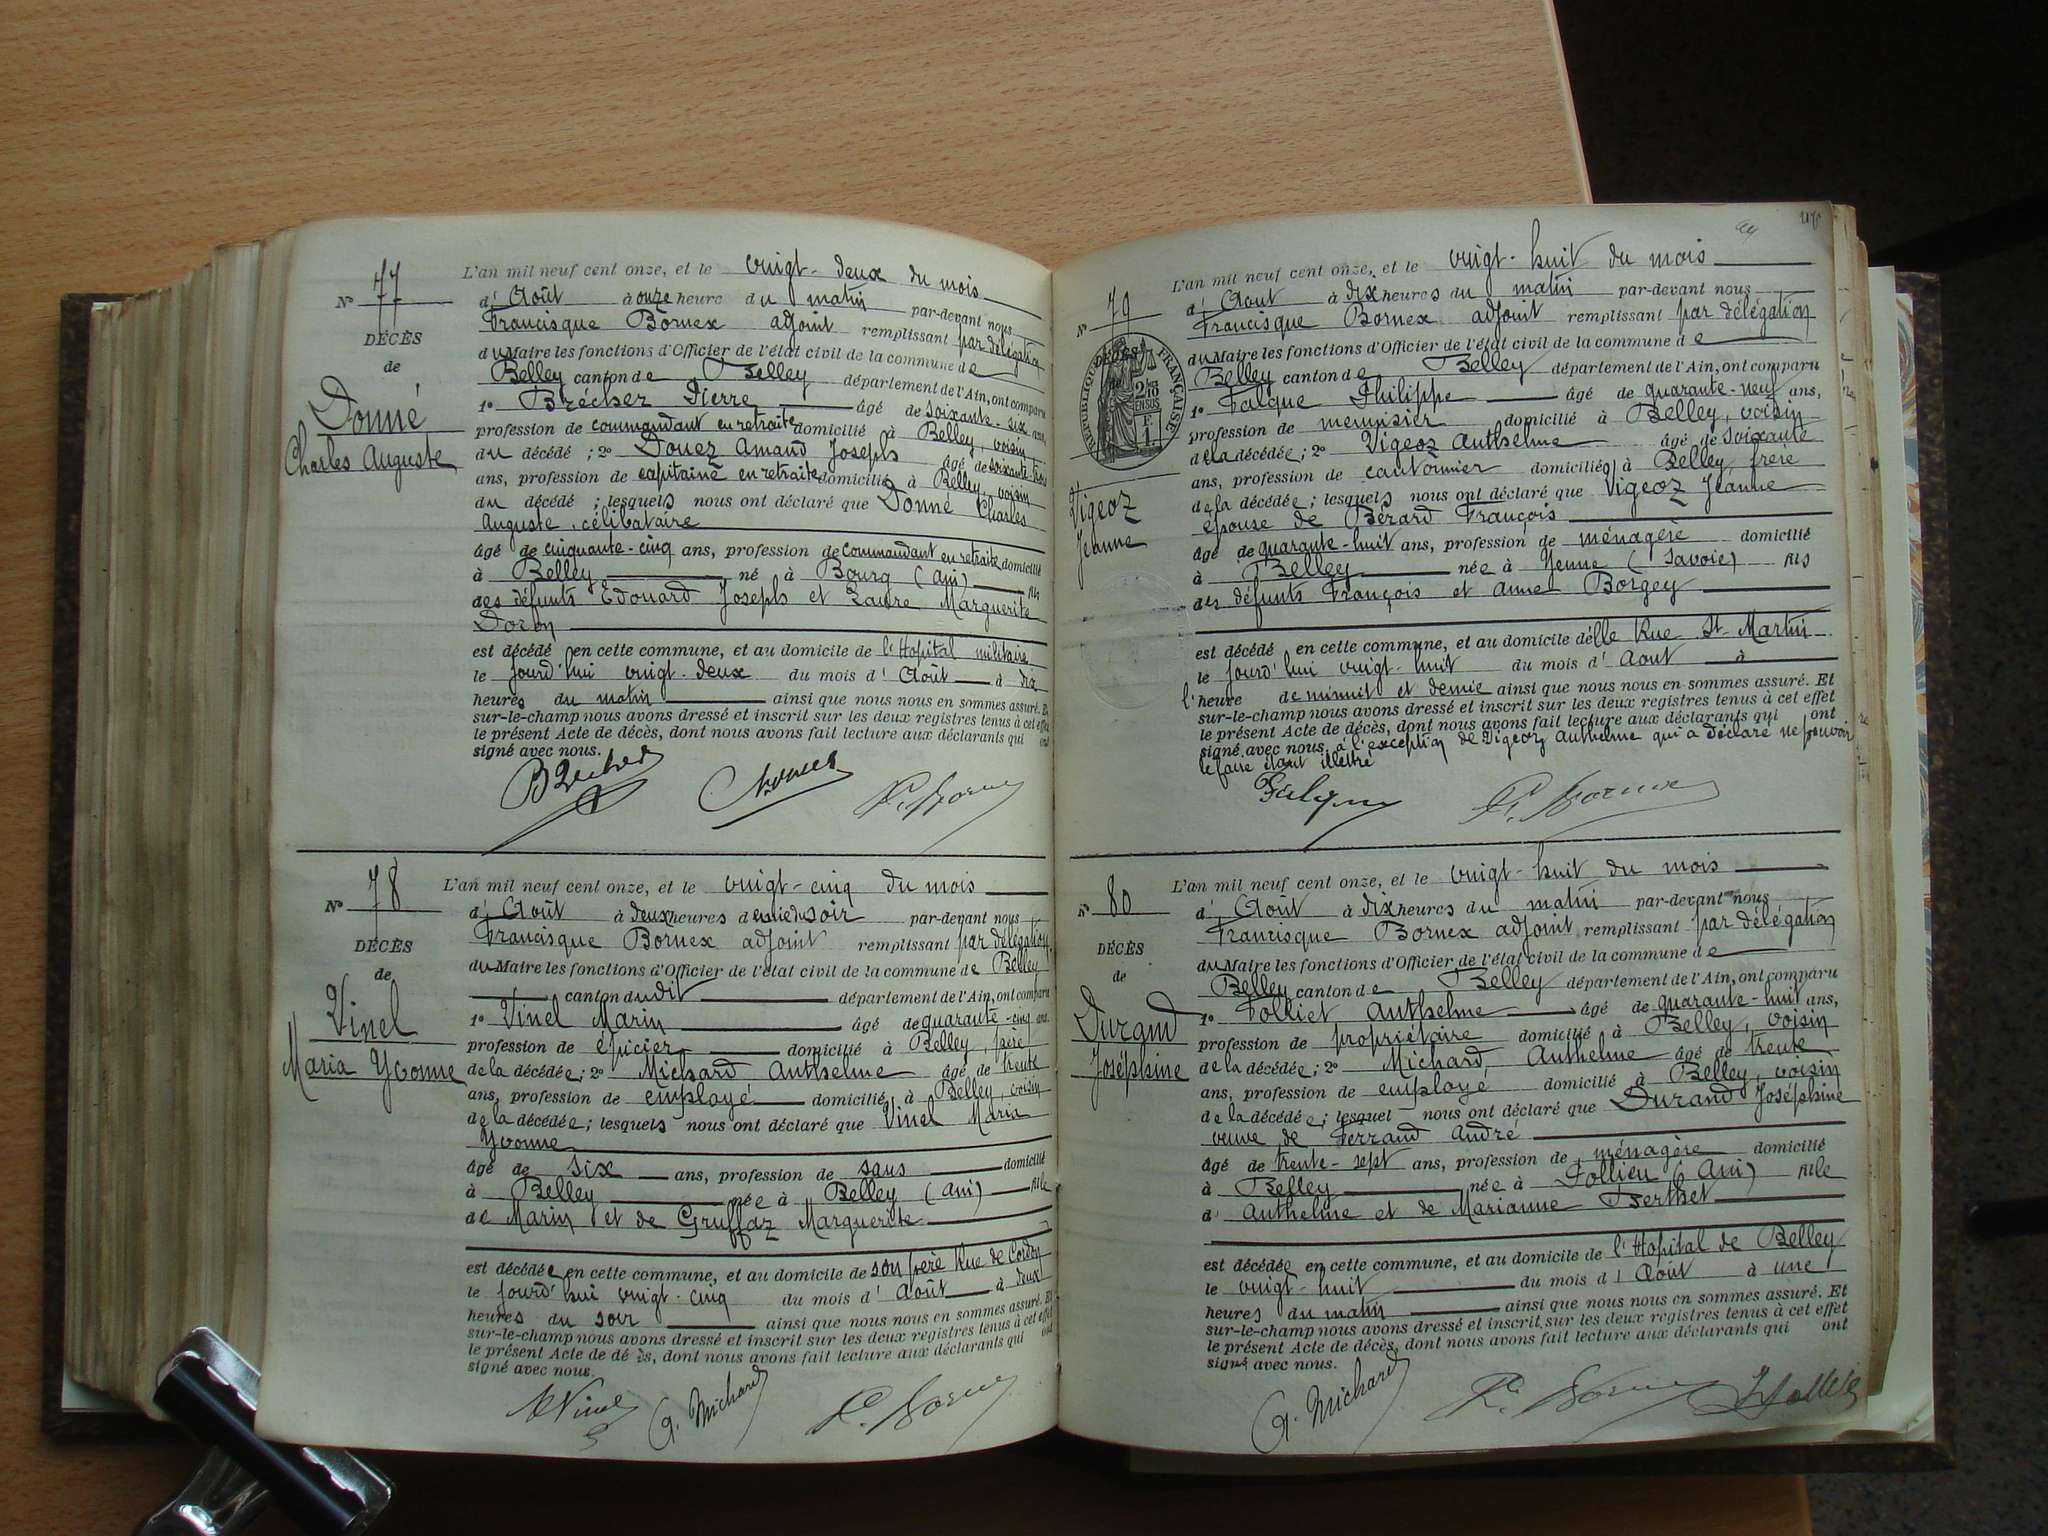 N° 77
DÉCÈS
de
Donné
Charles Auguste
L'an mil neuf cent onze, et le vingt-deux du mois
d'Août à onze heure du matin par-devant nous
Francisque Bornex adjoint remplissant par délégation
du Maire les fonctions d'Officier de l'état civil de la commune de
Belley canton de Belley département de l'Ain, ont comparu
1° Brécher Pierre âgé de soixante-six ans,
profession de commandant en retraite domicilié à Belley, voisin
du décédé ; 2° Douez Amand Joseph âgé de soixante-trois
ans, profession de capitaine en retraite domicilié à Belley, voisin
du décédé ; lesquels nous ont déclaré que Donné Charles
Auguste, célibataire
âgé de cinquante-cinq ans, profession de commandant en retraite domicilié
à Belley né à Bourg (Ain) fils
des défunts Edouard Joseph et Laure Marguerite
Doron
est décédé en cette commune, et au domicile de l'Hopital militaire
le jourd'hui vingt-deux du mois d'Août à dix
heures du matin ainsi que nous nous en sommes assuré. Et
sur-le-champ nous avons dressé et inscrit sur les deux registres tenus à cet effet
le présent Acte de décès, dont nous avons fait lecture aux déclarants qui ont
signé avec nous.
F. Bornex
N° 78
DÉCÈS
de
Vinel
Maria Yvonne
L'an mil neuf cent onze, et le vingt-cinq du mois
d'Août à deux heures demie du soir par-devant nous
Francisque Bornex adjoint remplissant par délégation
du Maire les fonctions d'Officier de l'état civil de la commune de Belley
canton dudit département de l'Ain, ont comparu
1° Vinel Marin âgé de quarante-cinq ans,
profession de épicier domicilié à Belley, père
de la décédée ; 2° Michard Anthelme âgé de trente
ans, profession de employé domicilié à Belley, voisin
de la décédée ; lesquels nous ont déclaré que Vinel Maria
Yvonne
âgé de six ans, profession de sans domicilié
à Belley née à Belley (Ain) fille
de Marin et de Gruffaz Marguerite
est décédée en cette commune, et au domicile de son père Rue de Cordon
le jourd'hui vingt-cinq du mois d'Août à deux
heures du soir ainsi que nous nous en sommes assuré. Et
sur-le-champ nous avons dressé et inscrit sur les deux registres tenus à cet effet
le présent Acte de dé ès, dont nous avons fait lecture aux déclarants qui ont
signé avec nous.
Vinel A. Michard F. Bornex
N° 79
RÉPUBLIQUE FRANÇAISE
DÉCÈS
de
2/10
EN SUS
F.
1
Vigeoz
Jeanne
L'an mil neuf cent onze, et le vingt-huit du mois
d'Août à dix heures du matin par-devant nous
Francisque Bornex adjoint remplissant par délégation
du Maire les fonctions d'Officier de l'état civil de la commune de
Belley canton de Belley département de l'Ain, ont comparu
1° Falque Philippe âgé de quarante-neuf ans,
profession de menuisier domicilié à Belley, voisin
de la décédée ; 2° Vigeoz Anthelme âgé de soixante
ans, profession de cantonnier domiciliés à Belley, frère
de la décédée ; lesquels nous ont déclaré que Vigeoz Jeanne
épouse de Bérard François
âgé de quarante-huit ans, profession de ménagère domicilié
à Belley née à Yenne (Savoie) fils
des défunts François et Anne Borgey
est décédé en cette commune, et au domicile d'elle Rue St-Martin
le jourd'hui vingt-huit du mois d'Août à
l'heure de minuit et demie ainsi que nous nous en sommes assuré. Et
sur-le-champ nous avons dressé et inscrit sur les deux registres tenus à cet effet
le présent Acte de décès, dont nous avons fait lecture aux déclarants qui ont
signé avec nous, à l'exception de Vigeoz Anthelme qui a déclaré ne pouvoir
le faire étant illettré
Falque F. Bornex
N° 80
DÉCÈS
de
Durand
Joséphine
L'an mil neuf cent onze, et le vingt-huit du mois
d'Août à dix heures du matin par-devant nous
Francisque Bornex adjoint remplissant par délégation
du Maire les fonctions d'Officier de l'état civil de la commune de
Belley canton de Belley département de l'Ain, ont comparu
1° Folliet Anthelme âgé de quarante-huit ans,
profession de propriétaire domicilié à Belley, voisin
de la décédée ; 2° Michard Anthelme âgé de trente
ans, profession de employé domicilié à Belley, voisin
de la décédée ; lesquel nous ont déclaré que Durand Joséphine
veuve de Ferrand André
âgé de trente-sept ans, profession de ménagère domicilié
à Belley née à Pollieu (Ain) fille
d'Anthelme et de Marianne Berthet
est décédée en cette commune, et au domicile de l'Hopital de Belley
le vingt-huit du mois d'Août à une
heures du matin ainsi que nous nous en sommes assuré. Et
sur-le-champ nous avons dressé et inscrit sur les deux registres tenus à cet effet
le présent Acte de décès, dont nous avons fait lecture aux déclarants qui ont
signé avec nous.
A. Michard F. Bornex